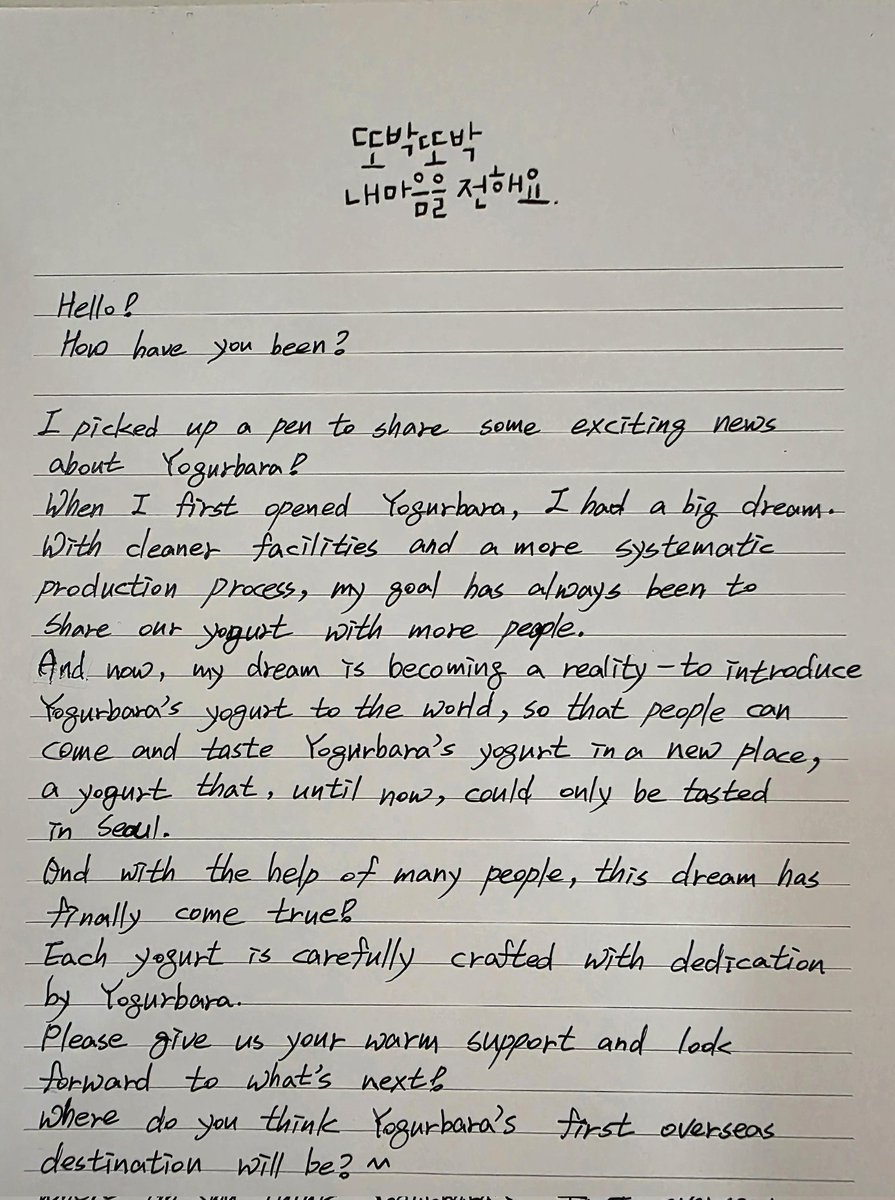 또박또박
내마음을 전해요.
Hello!
How have you been?
I picked up a pen to share some exciting news
about Yogurbara!
When I first opened Yogurbara, I had a big dream.
With cleaner facilities and a more systematic
production process, my goal has always been to
share our yogurt with more people.
And now, my dream is becoming a reality – to introduce
Yogurbara's yogurt to the world, so that people can
come and taste Yogurbara's yogurt in a new place,
a yogurt that, until now, could only be tasted
in Seoul.
And with the help of many people, this dream has
finally come true!
Each yogurt is carefully crafted with dedication
by Yogurbara.
Please give us your warm support and look
forward to what's next!
Where do you think Yogurbara's first overseas
destination will be? ~